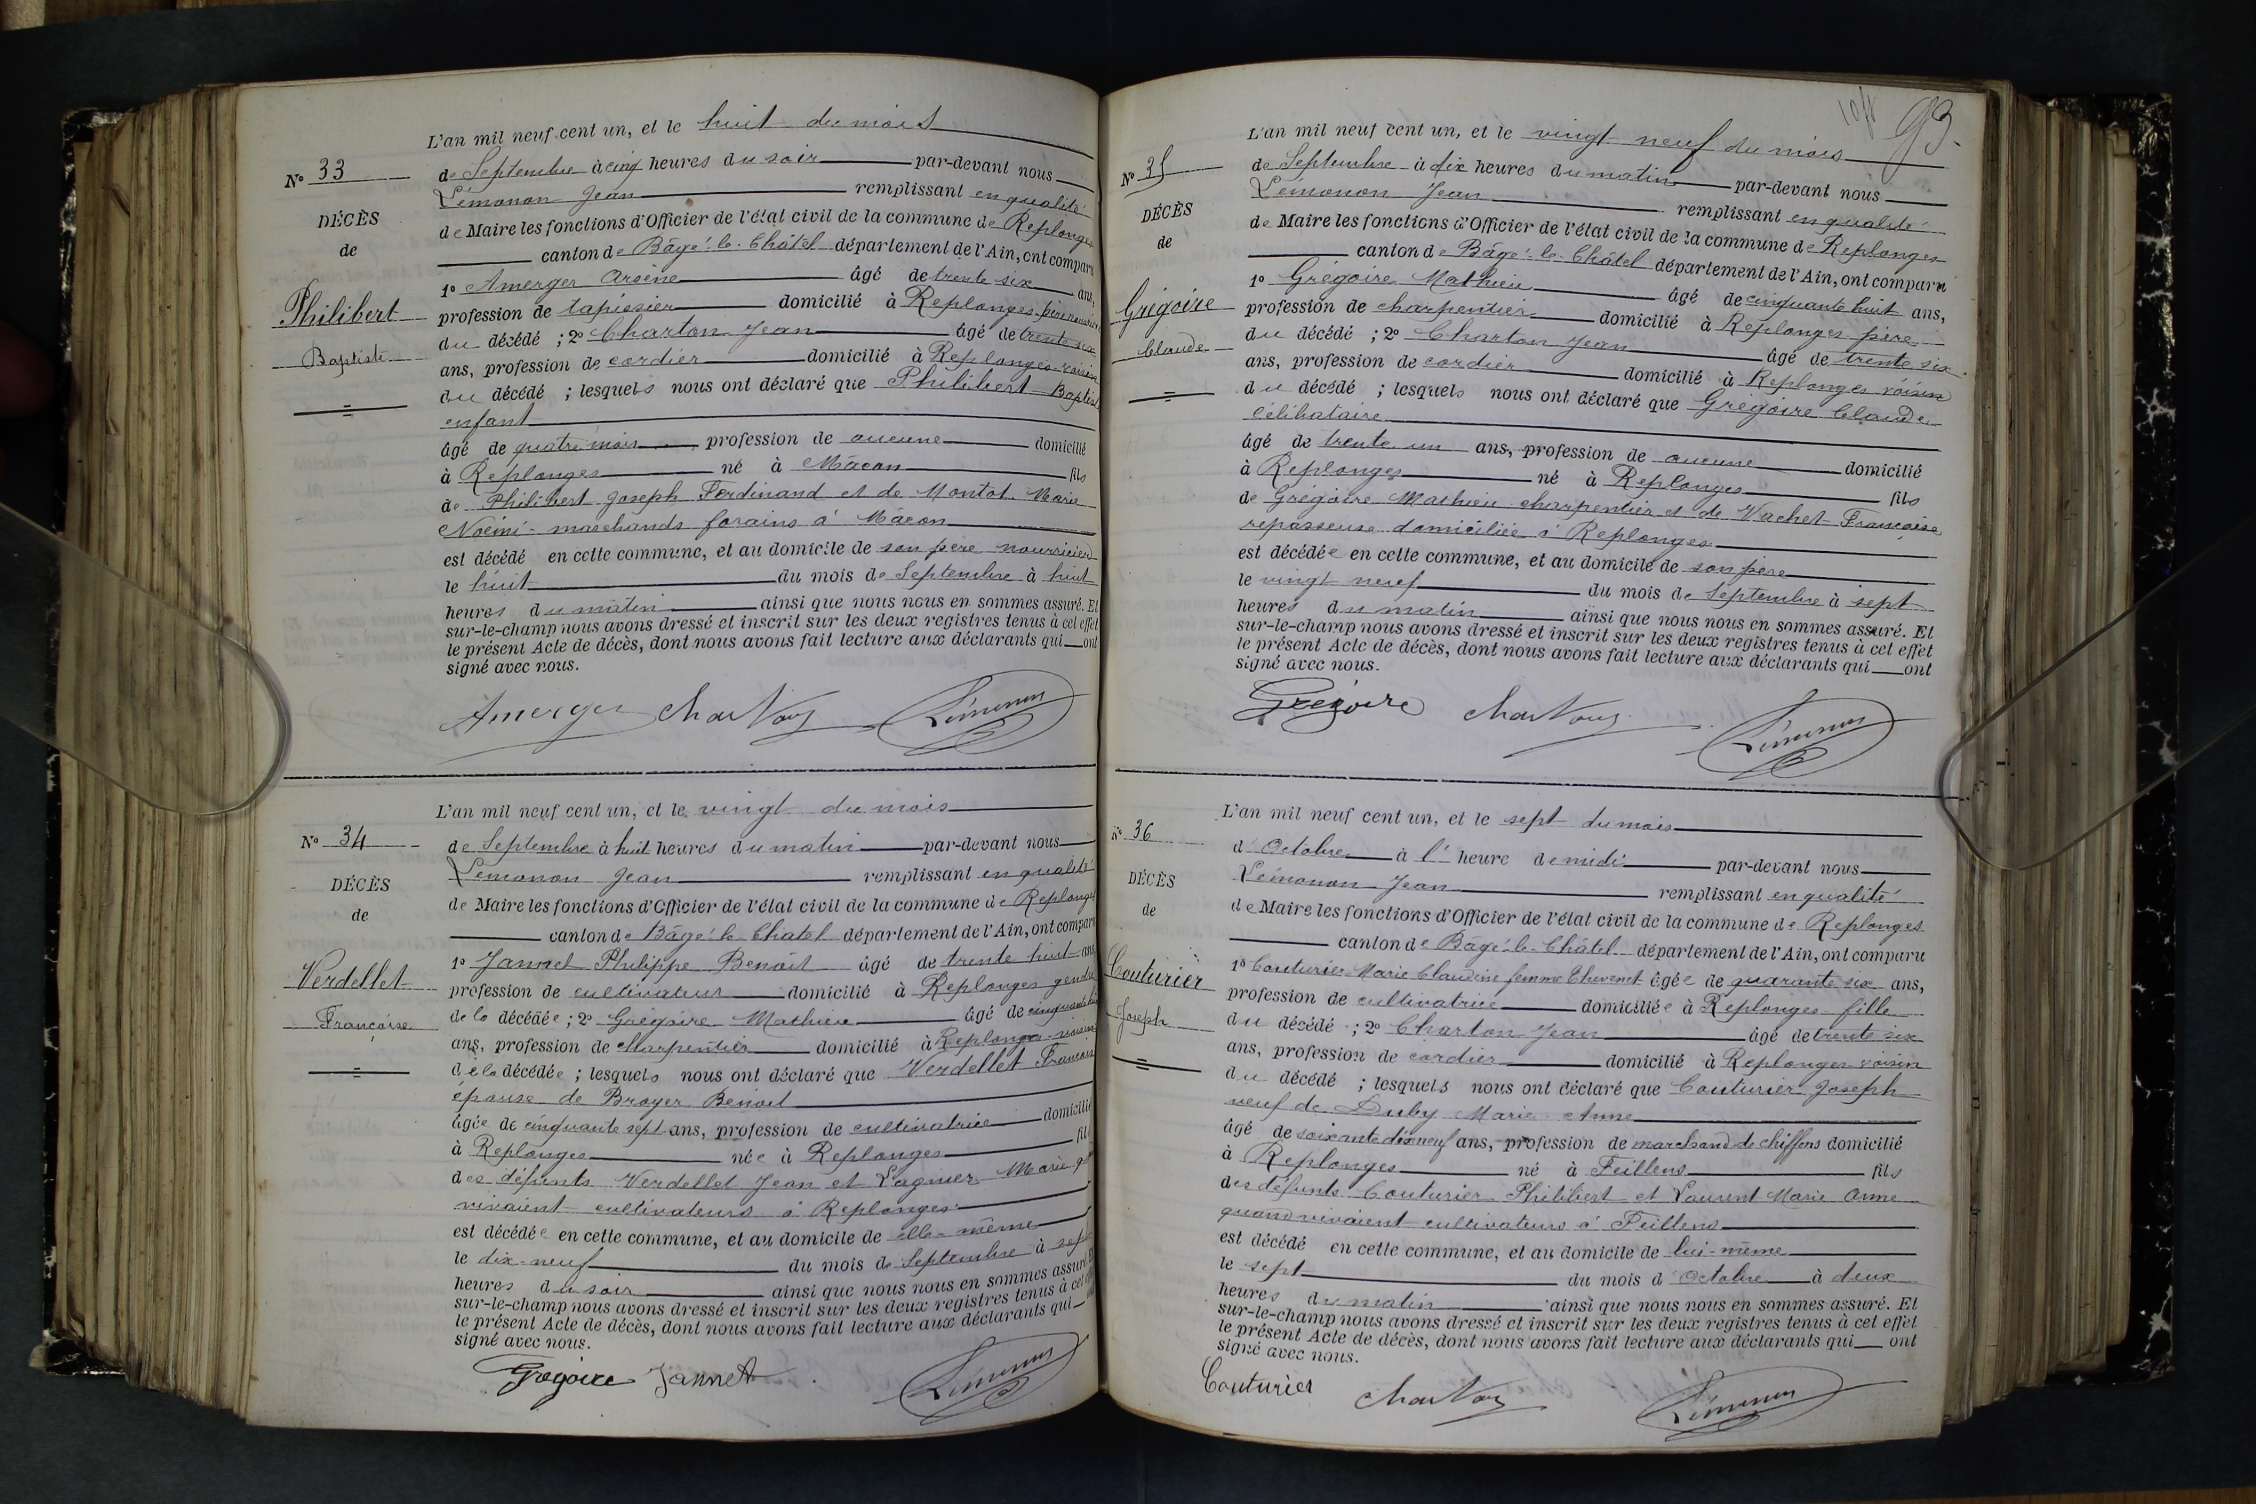 N° 33
DÉCÈS
de
Philibert
Baptiste
L'an mil neuf cent un, et le huit du mois
de Septembre à cinq heures du soir par-devant nous
Lémonon Jean remplissant en qualité
de Maire les fonctions d'Officier de l'état civil de la commune de Replonges
canton de Bâgé-le-Châtel département de l'Ain, ont comparu
1° Amerger Arsène âgé de trente six ans,
profession de tapissier domicilié à Replonges père nourricier
du décédé ; 2° Charton Jean âgé de trente six
ans, profession de cordier domicilié à Replonges voisin
du décédé ; lesquels nous ont déclaré que Philibert Baptiste
enfant
âgé de quatre mois profession de aucune domicilié
à Replonges né à Mâcon fils
de Philibert Joseph Ferdinand et de Montot Marie
Noémi marchands forains à Mâcon
est décédé en cette commune, et au domicile de son père nourricier
le huit du mois de Septembre à huit
heures du matin ainsi que nous nous en sommes assuré. Et
sur-le-champ nous avons dressé et inscrit sur les deux registres tenus à cet effet
le présent Acte de décès, dont nous avons fait lecture aux déclarants qui ont
signé avec nous.
Amerger Charton Lémonon
N° 34
DÉCÈS
de
Verdellet
Françoise
L'an mil neuf cent un, et le vingt du mois
de Septembre à huit heures du matin par-devant nous
Lémonon Jean remplissant en qualité
de Maire les fonctions d'Officier de l'état civil de la commune de Replonges
canton de Bâgé-le-Chatel département de l'Ain, ont comparu
1° Jannet Philippe Benoit âgé de trente huit ans
profession de cultivateur domicilié à Replonges gendre
de la décédée ; 2° Grégoire Mathieu âgé de cinquante huit
ans, profession de charpentier domicilié à Replonges voisin
de la décédée ; lesquels nous ont déclaré que Verdellet Françoise
épouse de Broyer Benoit
âgée de cinquante sept ans, profession de cultivatrice domicilié
à Replonges née à Replonges fille
des défunts Verdellet Jean et Lagnier Marie
vivaient cultivateurs à Replonges
est décédée en cette commune, et au domicile de elle-même
le dix-neuf du mois de Septembre à sept
heures du soir ainsi que nous nous en sommes assuré. Et
sur-le-champ nous avons dressé et inscrit sur les deux registres tenus à cet effet
le présent Acte de décès, dont nous avons fait lecture aux déclarants qui
signé avec nous.
Grégoire Jannet Lémonon
93
N° 35
DÉCÈS
de
Grégoire
Claude
L'an mil neuf cent un, et le vingt neuf du mois
de Septembre à dix heures du matin par-devant nous
Lémonon Jean remplissant en qualité
de Maire les fonctions d'Officier de l'état civil de la commune de Replonges
canton de Bâgé-le-Châtel département de l'Ain, ont comparu
1° Grégoire Mathieu âgé de cinquante huit ans,
profession de charpentier domicilié à Replonges père
du décédé ; 2° Charton Jean âgé de trente six
ans, profession de cordier domicilié à Replonges voisin
du décédé ; lesquels nous ont déclaré que Grégoire Claude
célibataire
âgé de trente un ans, profession de aucune domicilié
à Replonges né à Replonges fils
de Grégoire Mathieu charpentier et de Vachet Françoise
repasseuse domiciliée à Replonges
est décédée en cette commune, et au domicile de son père
le vingt neuf du mois de Septembre à sept
heures du matin ainsi que nous nous en sommes assuré. Et
sur-le-champ nous avons dressé et inscrit sur les deux registres tenus à cet effet
le présent Acte de décès, dont nous avons fait lecture aux déclarants qui ont
signé avec nous.
Grégoire Charton Lémonon
N° 36
DÉCÈS
de
Couturier
Joseph
L'an mil neuf cent un, et le sept du mois
d'Octobre à l'heure de midi par-devant nous
Lémonon Jean remplissant en qualité
de Maire les fonctions d'Officier de l'état civil de la commune de Replonges
canton de Bâgé-le-Châtel département de l'Ain, ont comparu
1° Couturier Marie Claudine femme Thevenet âgée de quarante six ans,
profession de cultivatrice domiciliée à Replonges fille
du décédé ; 2° Charton Jean âgé de trente six
ans, profession de cordier domicilié à Replonges voisin
du décédé ; lesquels nous ont déclaré que Couturier Joseph
veuf de Duby Marie Anne
âgé de soixante dix neuf ans, profession de marchand de chiffons domicilié
à Replonges né à Feillens fils
des défunts Couturier Philibert et Laurent Marie Anne
quand vivaient cultivateurs à Feillens
est décédé en cette commune, et au domicile de lui-même
le sept du mois d'Octobre à deux
heures du matin ainsi que nous nous en sommes assuré. Et
sur-le-champ nous avons dressé et inscrit sur les deux registres tenus à cet effet
le présent Acte de décès, dont nous avons fait lecture aux déclarants qui ont
signé avec nous.
Couturier Charton Lémonon